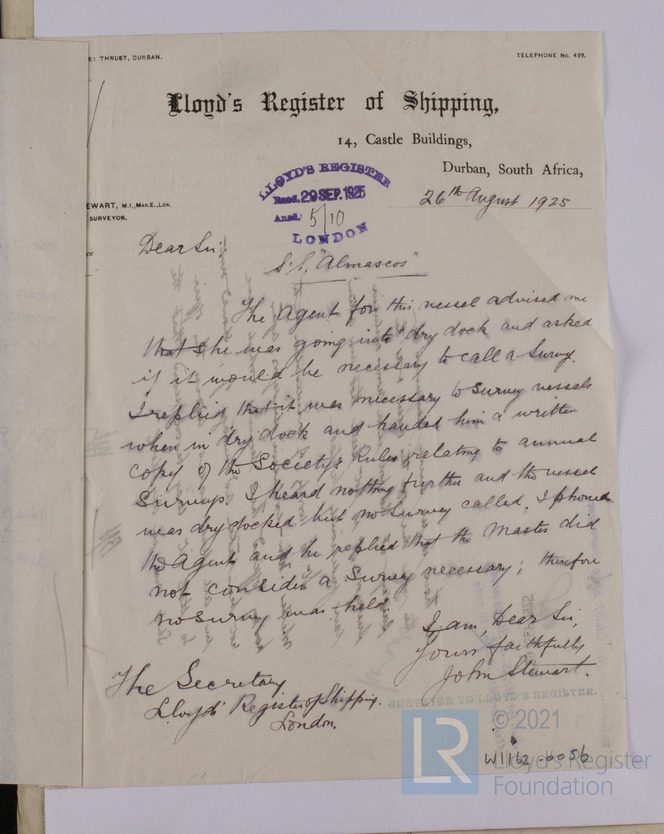 THRUST, DURBAN.
TELEPHONE No. 499.
Lloyd's Register of Shipping,
14, Castle Buildings,
Durban, South Africa,
26th August 1925
LLOYD'S REGISTER
Recd. 29 SEP. 1925
Ansd. 5/10
LONDON
EWART, M.I.,MAR.E.,LON.
SURVEYOR.
Dear Sir,
S.S. "Almascos"
The Agent for this vessel advised me
that she was going into dry dock and asked
if it would be necessary to call a Survey.
I replied that it was necessary to Survey vessels
when in dry dock and handed him a written
copy of the Society's Rules relating to annual
Surveys. I heard nothing further and the vessel
was dry docked but no Survey called. I phoned
the Agent and he replied that the Master did
not consider a Survey necessary; therefore
no survey was held.
I am, Dear Sir,
Yours faithfully
John Stewart.
SURVEYOR TO LLOYD'S REGISTER.
The Secretary
Lloyds' Register of Shipping.
London.
W1162-0056
LR
© 2021
Lloyd's Register
Foundation